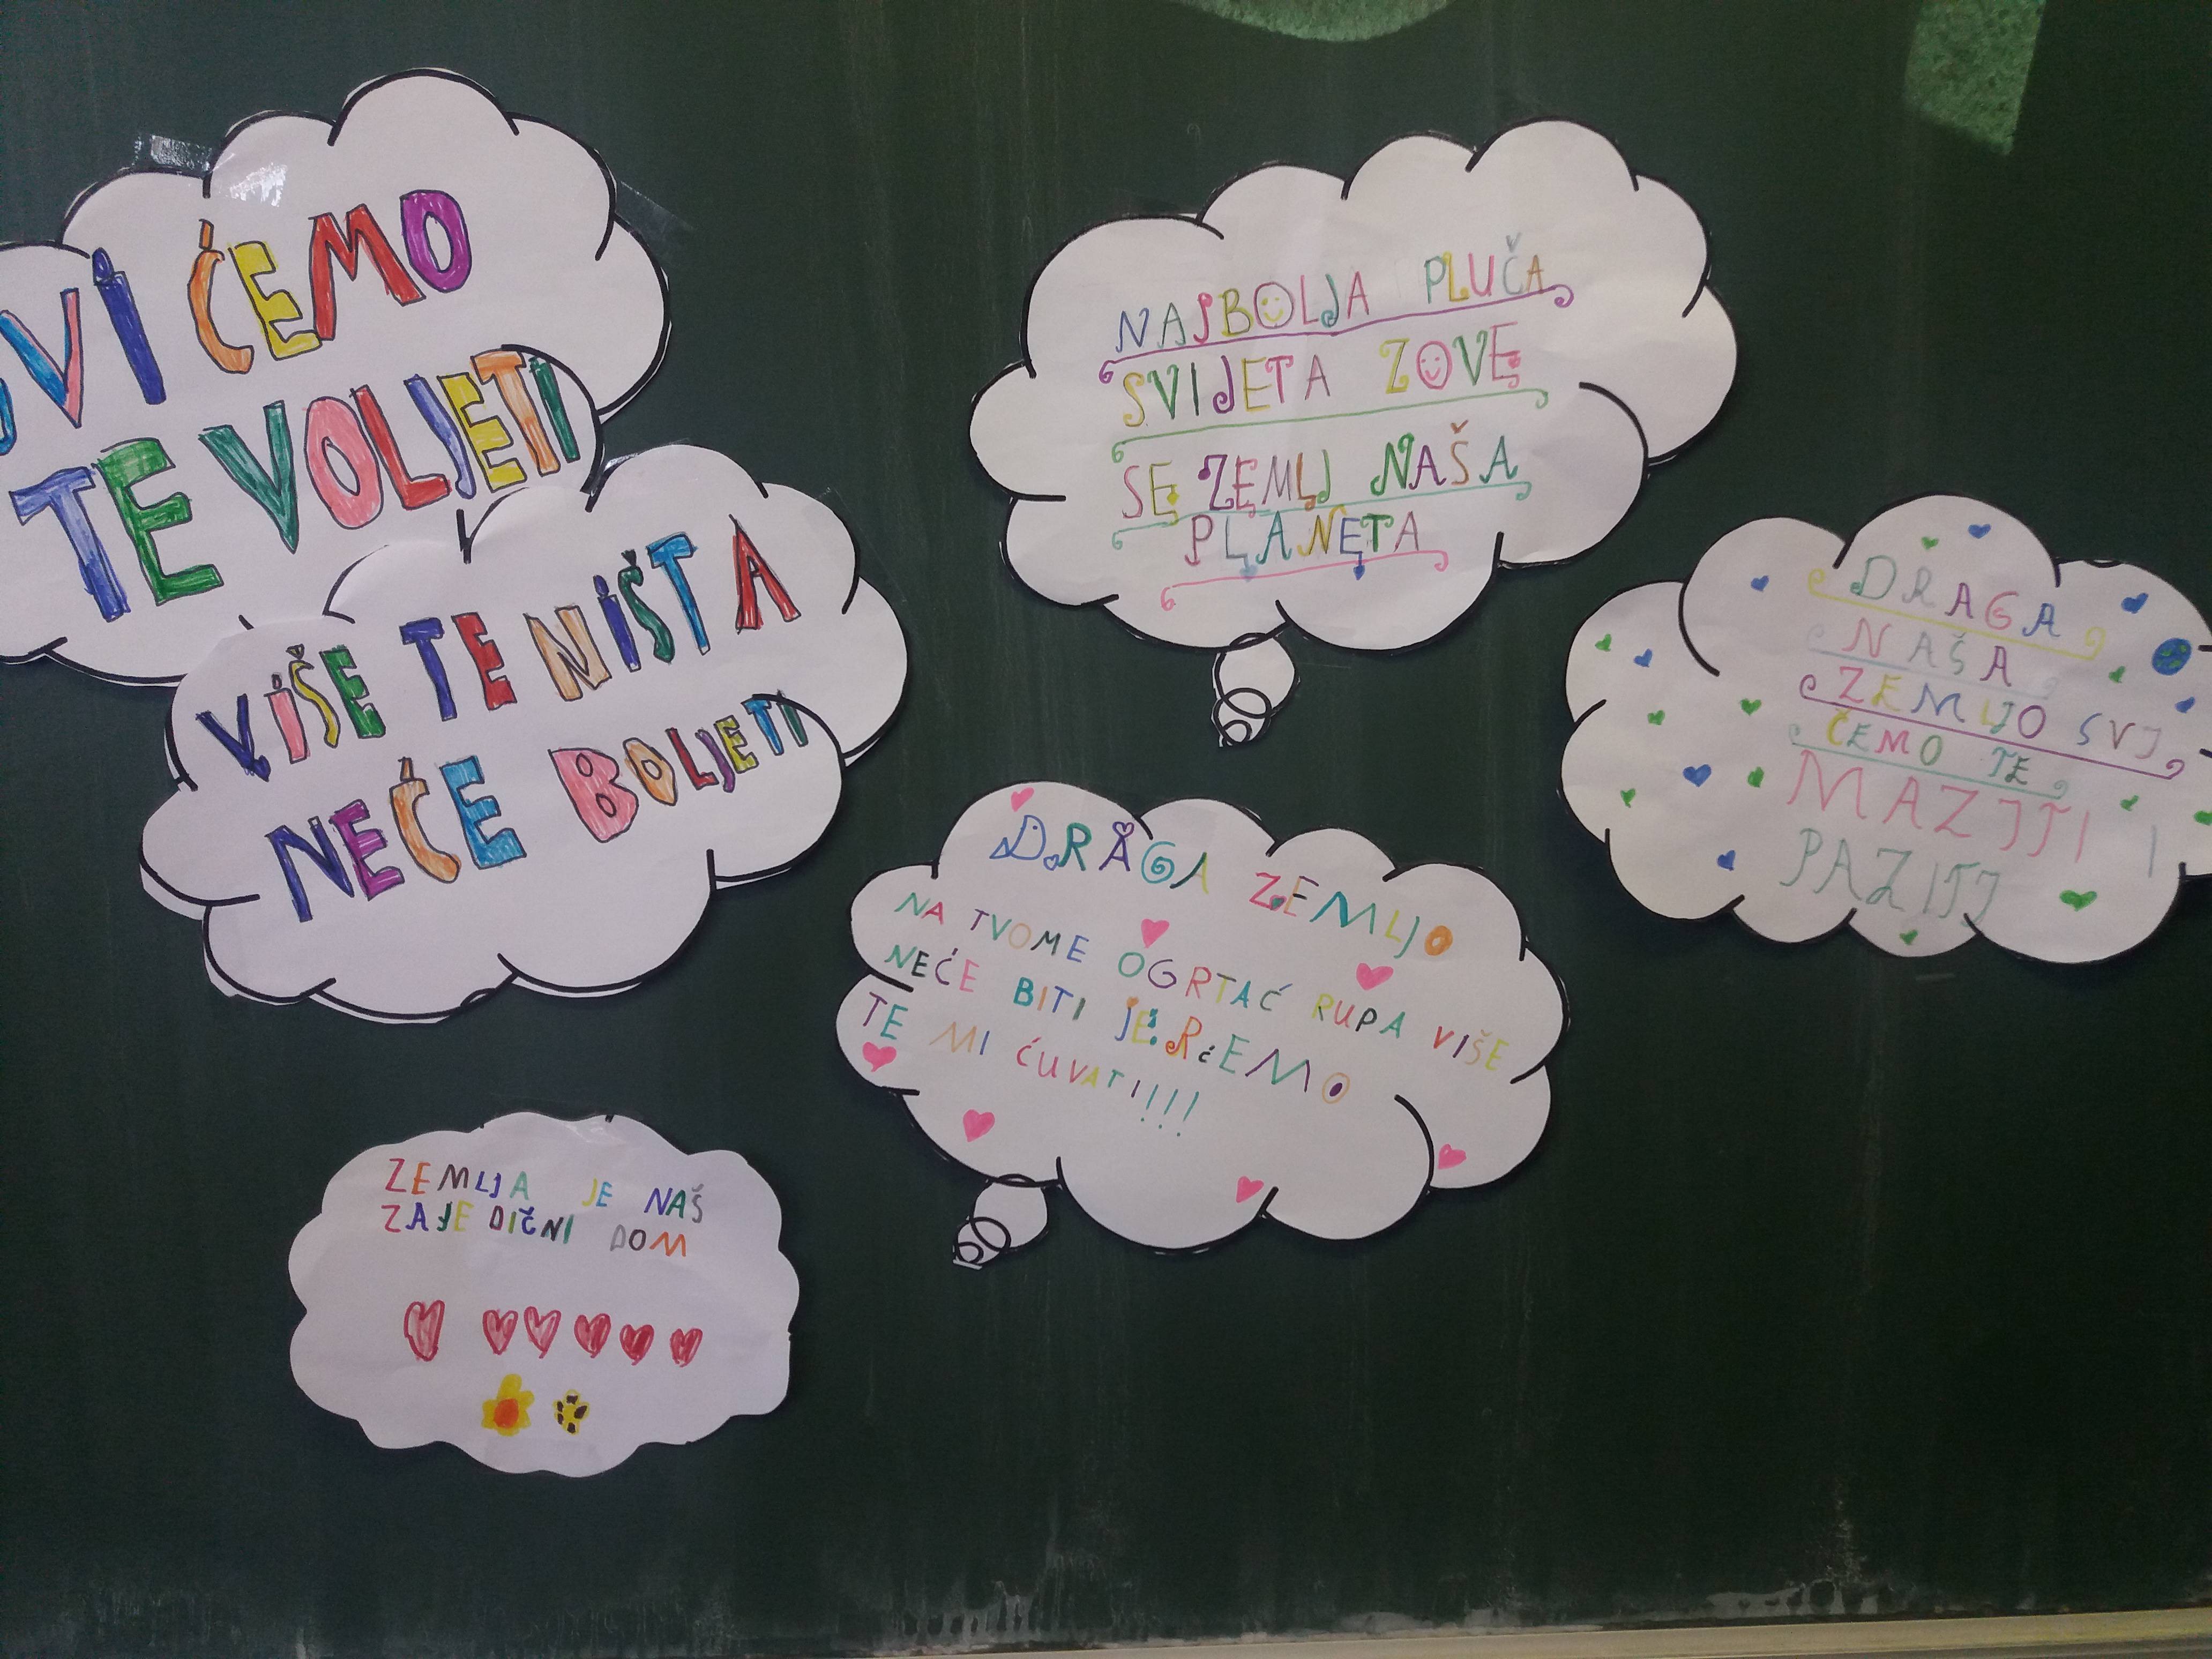 SVI ĆEMO
TE VOLJETI
VIŠE TE NIŠTA
NEĆE BOLJETI
NAJBOLJA PLUČA
SVIJETA ZOVE
SE ZEMLJ NAŠA
PLANETA
DRAGA
NAŠA
ZEMLJO SVI
ČEMO TE
MAZITI I
PAZITI
DRAGA ZEMLJO
NA TVOME OGRTAĆ RUPA VIŠE
NEĆE BITI JER ĆEMO
TE MI ĆUVATI!!!!
ZEMLJA JE NAŠ
ZAJEDIČNI DOM